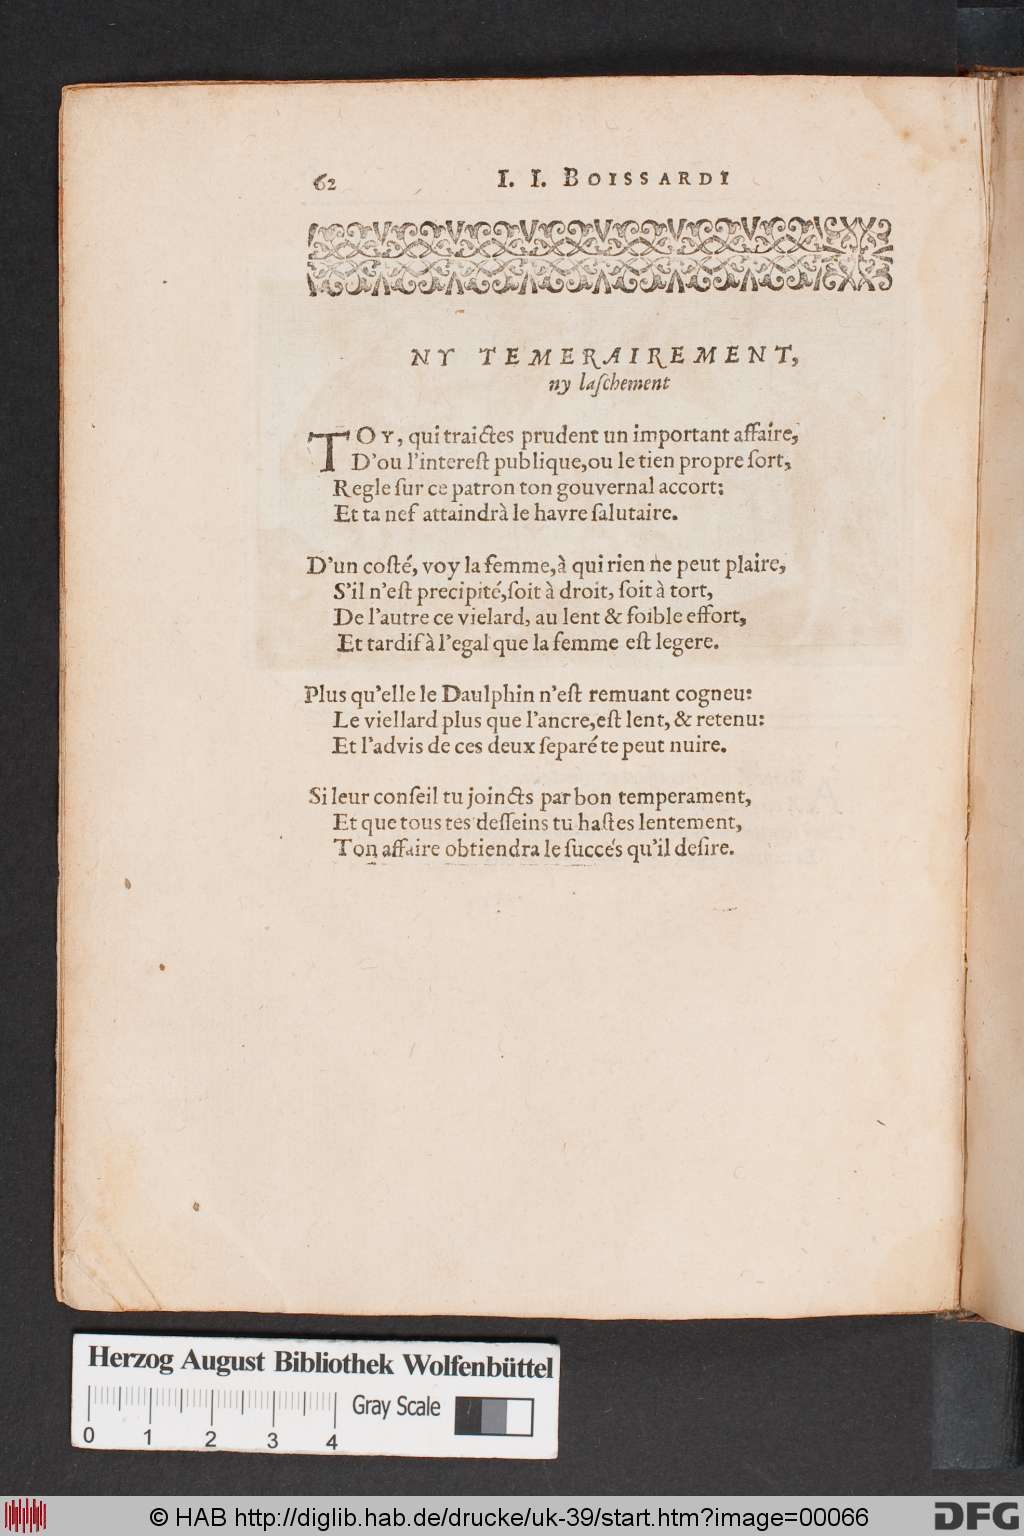 62 I. I. BOISSARDI
NY TEMERAIREMENT,
ny laſchement
TOY, qui traictes prudent un important affaire,
D'ou l'intereſt publique, ou le tien propre ſort,
Regle ſur ce patron ton gouvernal accort:
Et ta nef attaindrà le havre ſalutaire.
D'un coſté, voy la femme, à qui rien ne peut plaire,
S'il n'eſt precipité, ſoit à droit, ſoit à tort,
De l'autre ce vielard, au lent & foible effort,
Et tardif à l'egal que la femme eſt legere.
Plus qu'elle le Daulphin n'eſt remuant cogneu:
Le viellard plus que l'ancre, eſt lent, & retenu:
Et l'advis de ces deux ſeparé te peut nuire.
Si leur conſeil tu joincts par bon temperament,
Et que tous tes deſſeins tu haſtes lentement,
Ton affaire obtiendra le ſuccés qu'il deſire.
Herzog August Bibliothek Wolfenbüttel
Gray Scale
0 1 2 3 4
© HAB http://diglib.hab.de/drucke/uk-39/start.htm?image=00066
DFG